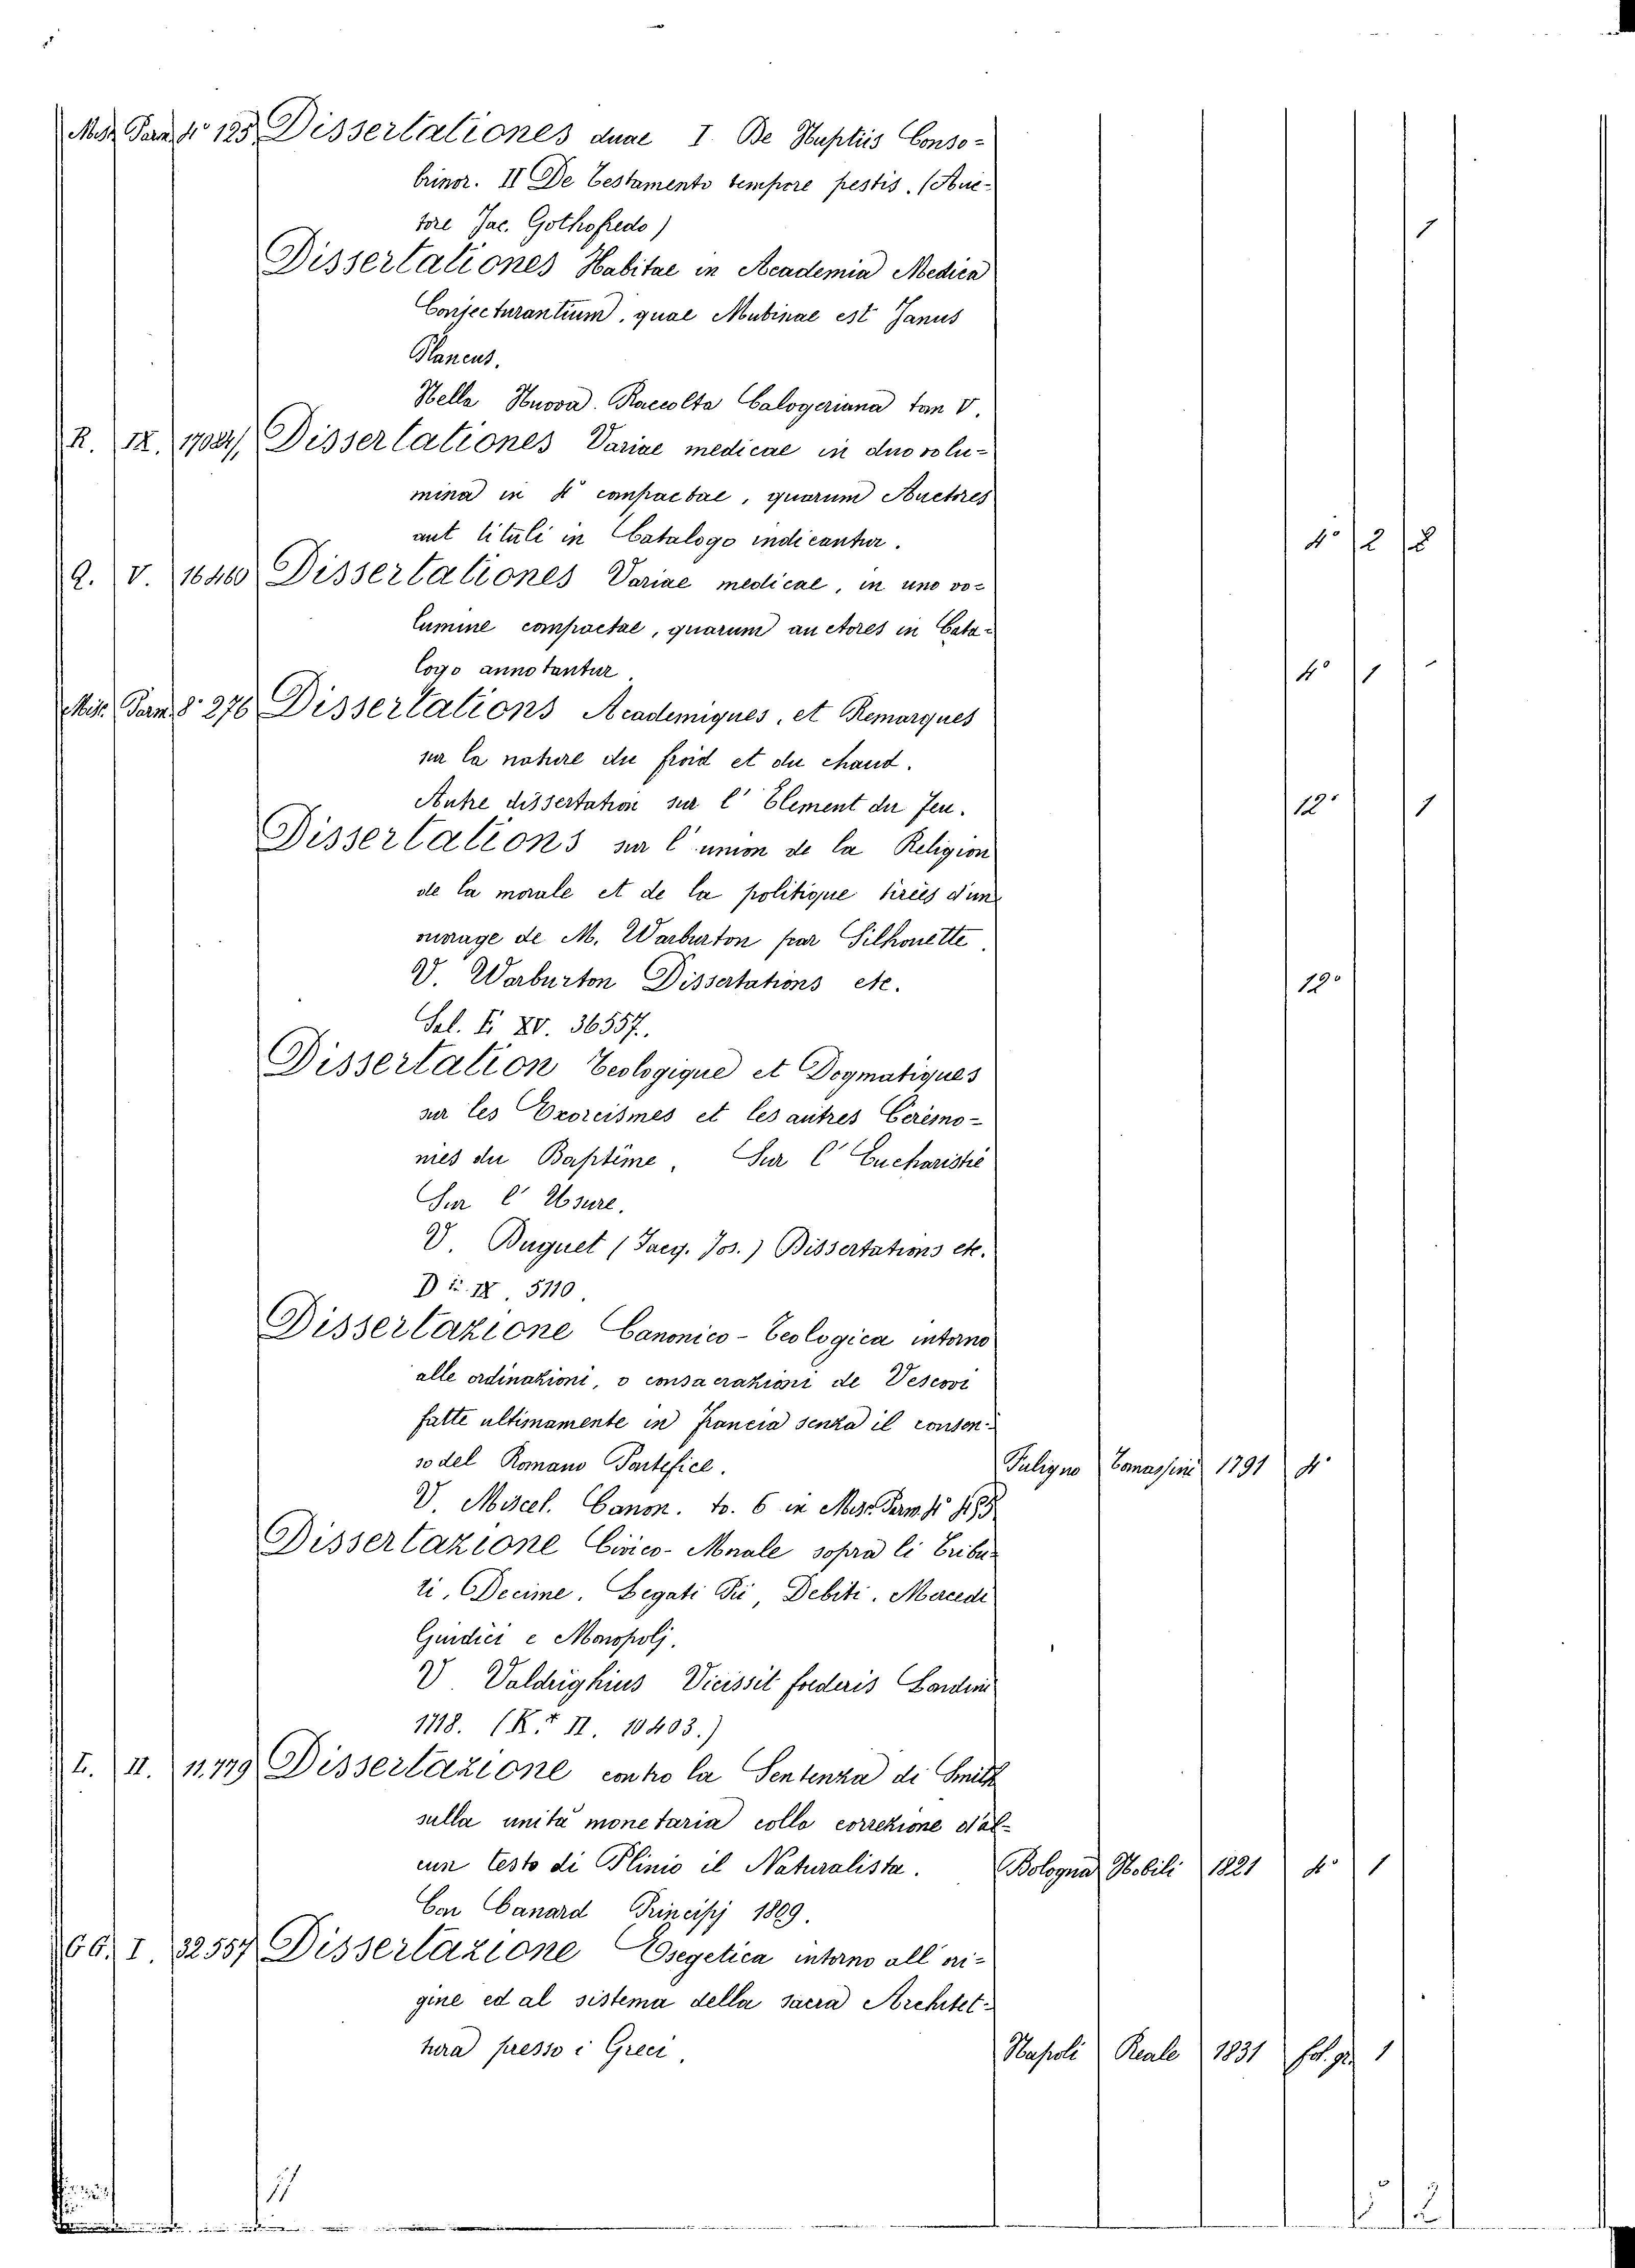 Misc. Parm. 4° 125. Dissertationes duae I. De Nuptiis Conso-
brinor. II De Testamento tempore pestis. (Auc-
tore Jac. Gothofredo) 1
Dissertationes Habitae in Academia Medica
Conjecturantium, quae Mutinae est Janus
Plancus.
Nella Nuova Raccolta Calogeriana tom V.
R. IX. 17024/ Dissertationes Variae medicae in duo volu-
mina in 4° compactae, quorum Auctores
aut tituli in Catalogo indicantur. 4° 2 2
Q. V. 16460 Dissertationes Variae medicae, in uno vo-
lumine compactae, quarum auctores in Cata-
logo annotantur. 4° 1
Misc. Parm. 8° 276 Dissertations Academiques, et Remarques
sur la nature du froid et du chaud.
Autre dissertation sur l' Element du feu. 12° 1
Dissertations sur l'union de la Religion
de la morale et de la politique tirées d'un
ouvrage de M. Warburton par Silhouette.
V. Warburton Dissertations etc. 12°
Sal. F. XV. 36557.
Dissertation Teologique et Dogmatiques
sur les Exorcismes et les autres Cerémo-
nies du Baptême, Sur l' Eucharistie
Sur l' Usure.
V. Buguet (Jacq. Jos.) Dissertations etc.
D IX. 5110.
Dissertazione Canonico-Teologica intorno
alle ordinazioni, o consacrazioni de Vescovi
fatte ultimamente in Francia senza il consen-
so del Romano Pontefice. Fuligno Tomassini 1791 4°
V. Miscel. Canon. to. 6 in Misc. Parm. 4°
Dissertazione Civico-Morale sopra li Tribu-
ti, Decime, Legati Pii, Debiti, Mercedi
Giudici e Monopolj.
V. Valdrighius Vicissit foederis
1718. (K. II. 10403.)
L. II. 11.779 Dissertazione contro la Sentenza di Smith
sulla unità monetaria colla correzione d'al-
cun testo di Plinio il Naturalista. Bologna Nobili 1821 4° 1
Con Canard Principj 1809.
GG. I. 32557 Dissertazione Esegetica intorno all'ori-
gine ed al sistema della sacra Architet-
tura presso i Greci. Napoli Reale 1831 fol. gr. 1
11 5 2